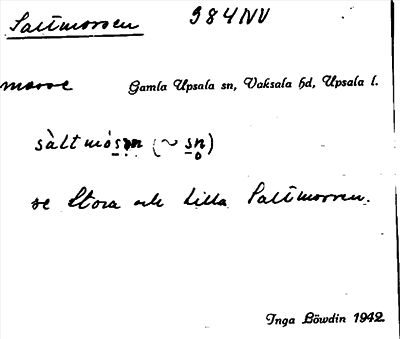 Saltmorren 984NV
morre Gamla Upsala sn, Vaksala hd, Upsala l.
sàltmósən (~ sn̥)
se Stora och Lilla Saltmorren.
Inga Löwdin 1942.